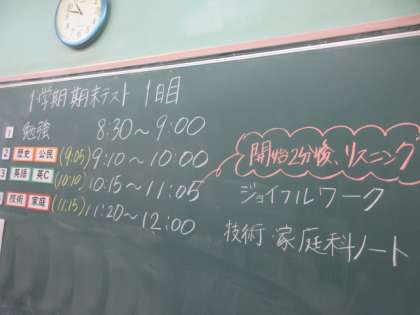 1学期期末テスト 1日目
1 勉強 8:30～9:00
2 歴史 公民 (9:05) 9:10～10:00
3 英語 英C (10:10) 10:15～11:05
4 技術 家庭 (11:15) 11:20～12:00
開始2分後、リスニング
ジョイフルワーク
技術・家庭科ノート